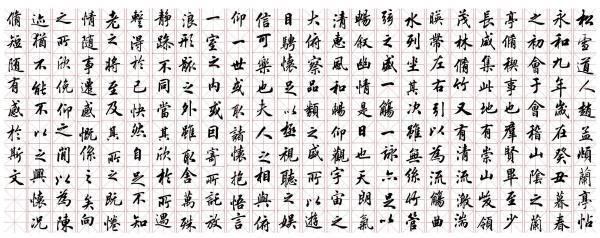 松雪道人趙孟頫蘭亭帖
永和九年歲在癸丑暮春
之初會于會稽山陰之蘭
亭脩禊事也群賢畢至少
長咸集此地有崇山峻領
茂林脩竹又有清流激湍
暎帶左右引以為流觴曲
水列坐其次雖無絲竹管
弦之盛一觴一詠亦足以
暢叙幽情是日也天朗氣
清惠風和暢仰觀宇宙之
大俯察品類之盛所以遊
目騁懷足以極視聽之娛
信可樂也夫人之相與俯
仰一世或取諸懷抱悟言
一室之内或因寄所託放
浪形骸之外雖取舍萬殊
靜躁不同當其欣於所遇
蹔得於己快然自足不知
老之將至及其所之既惓
情隨事遷感慨係之矣向
之所欣俛仰之間以為陳
迹猶不能不以之興懷况
脩短随有感於斯文